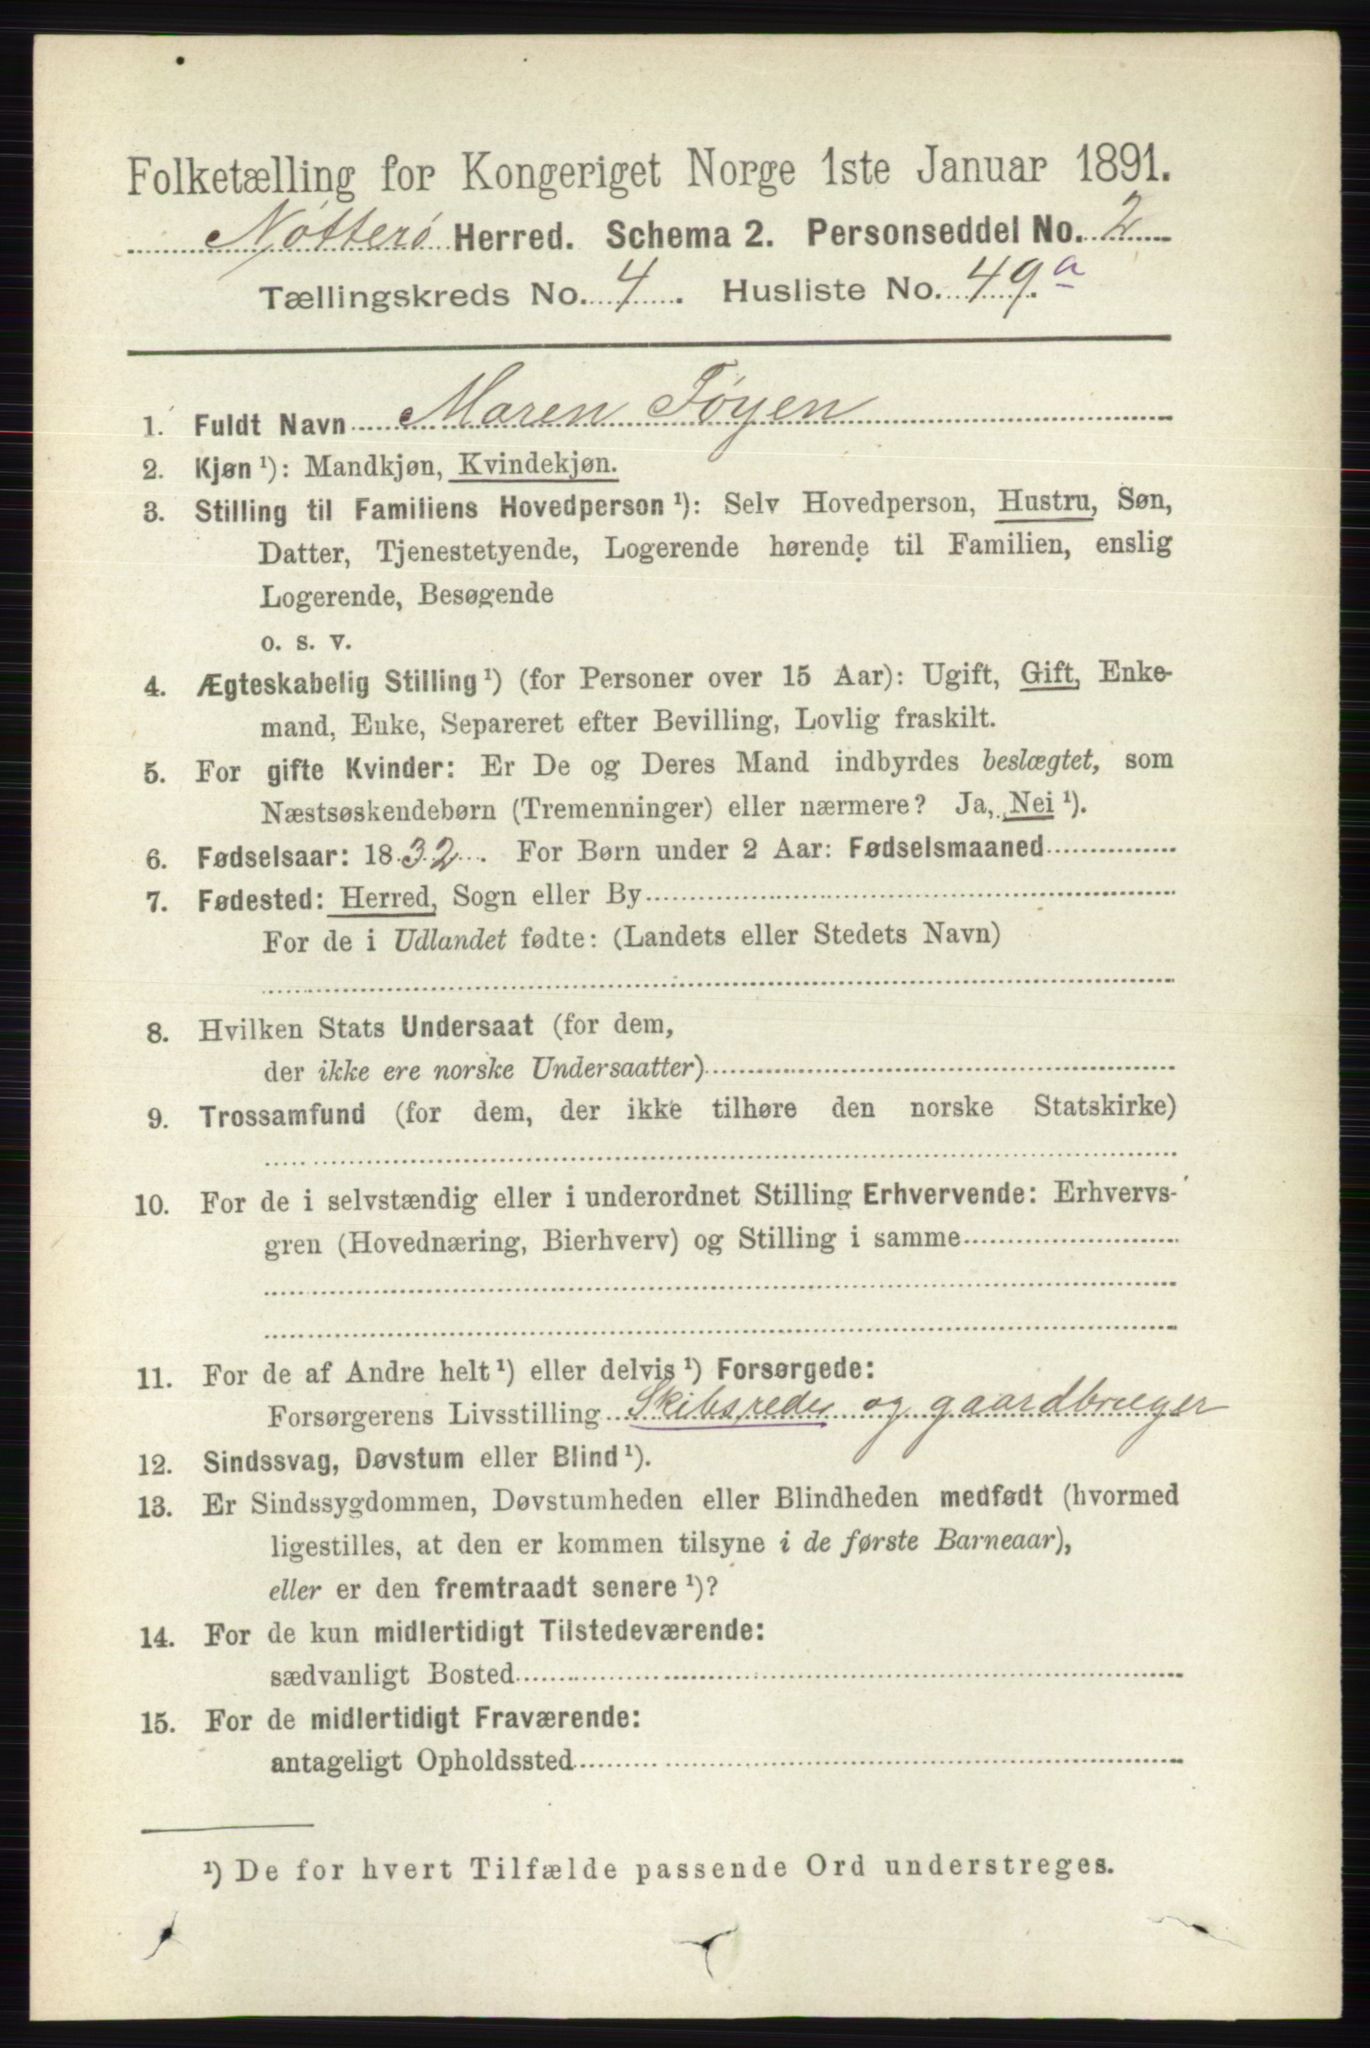 Folketælling for Kongeriget Norge 1ste Januar 1891.
Nøtterø Herred. Schema 2. Personseddel No. 2
Tællingskreds No. 4. Husliste No. 49.a
1. Fuldt Navn Maren Føyen
2. Kjøn ¹): Mandkjøn, Kvindekjøn.
3. Stilling til Familiens Hovedperson ¹): Selv Hovedperson, Hustru, Søn,
Datter, Tjenestetyende, Logerende hørende til Familien, enslig
Logerende, Besøgende
o. s. v.
4. Ægteskabelig Stilling ¹) (for Personer over 15 Aar): Ugift, Gift, Enke-
mand, Enke, Separeret efter Bevilling, Lovlig fraskilt.
5. For gifte Kvinder: Er De og Deres Mand indbyrdes beslægtet, som
Næstsøskendebørn (Tremenninger) eller nærmere? Ja, Nei ¹).
6. Fødselsaar: 1832. For Børn under 2 Aar: Fødselsmaaned
7. Fødested: Herred, Sogn eller By
For de i Udlandet fødte: (Landets eller Stedets Navn)
8. Hvilken Stats Undersaat (for dem,
der ikke ere norske Undersaatter)
9. Trossamfund (for dem, der ikke tilhøre den norske Statskirke)
10. For de i selvstændig eller i underordnet Stilling Erhvervende: Erhvervs-
gren (Hovednæring, Bierhverv) og Stilling i samme
11. For de af Andre helt ¹) eller delvis ¹) Forsørgede:
Forsørgerens Livsstilling Skibsreder og gaardbruger
12. Sindssvag, Døvstum eller Blind ¹).
13. Er Sindssygdommen, Døvstumheden eller Blindheden medfødt (hvormed
ligestilles, at den er kommen tilsyne i de første Barneaar),
eller er den fremtraadt senere ¹)?
14. For de kun midlertidigt Tilstedeværende:
sædvanligt Bosted
15. For de midlertidigt Fraværende:
antageligt Opholdssted
¹) De for hvert Tilfælde passende Ord understreges.